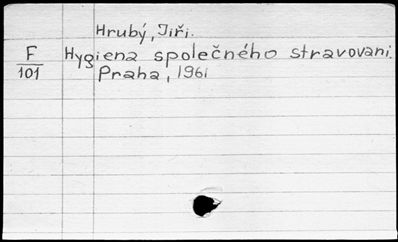 Hrubý, Jiří.
F Hygiena společného stravovani.
101 Praha, 1961